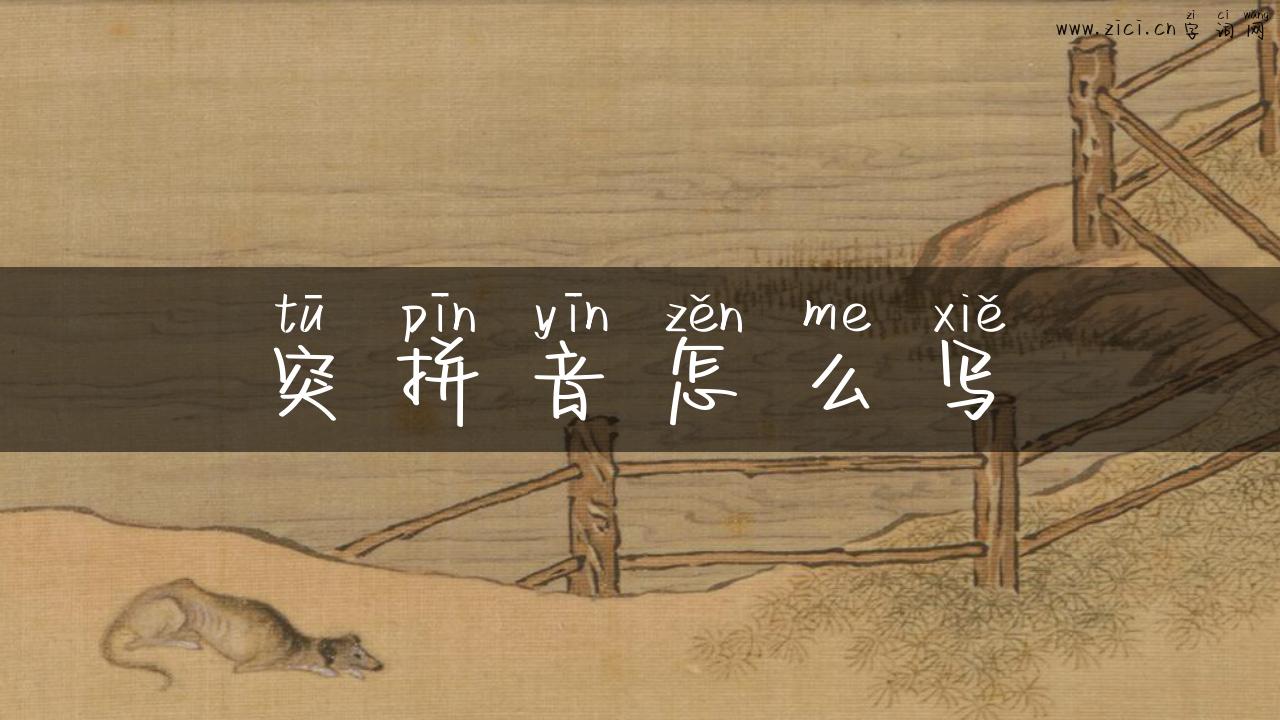 zi ci wang
www.zici.cn 字词网
tū pīn yīn zěn me xiě
突拼音怎么写